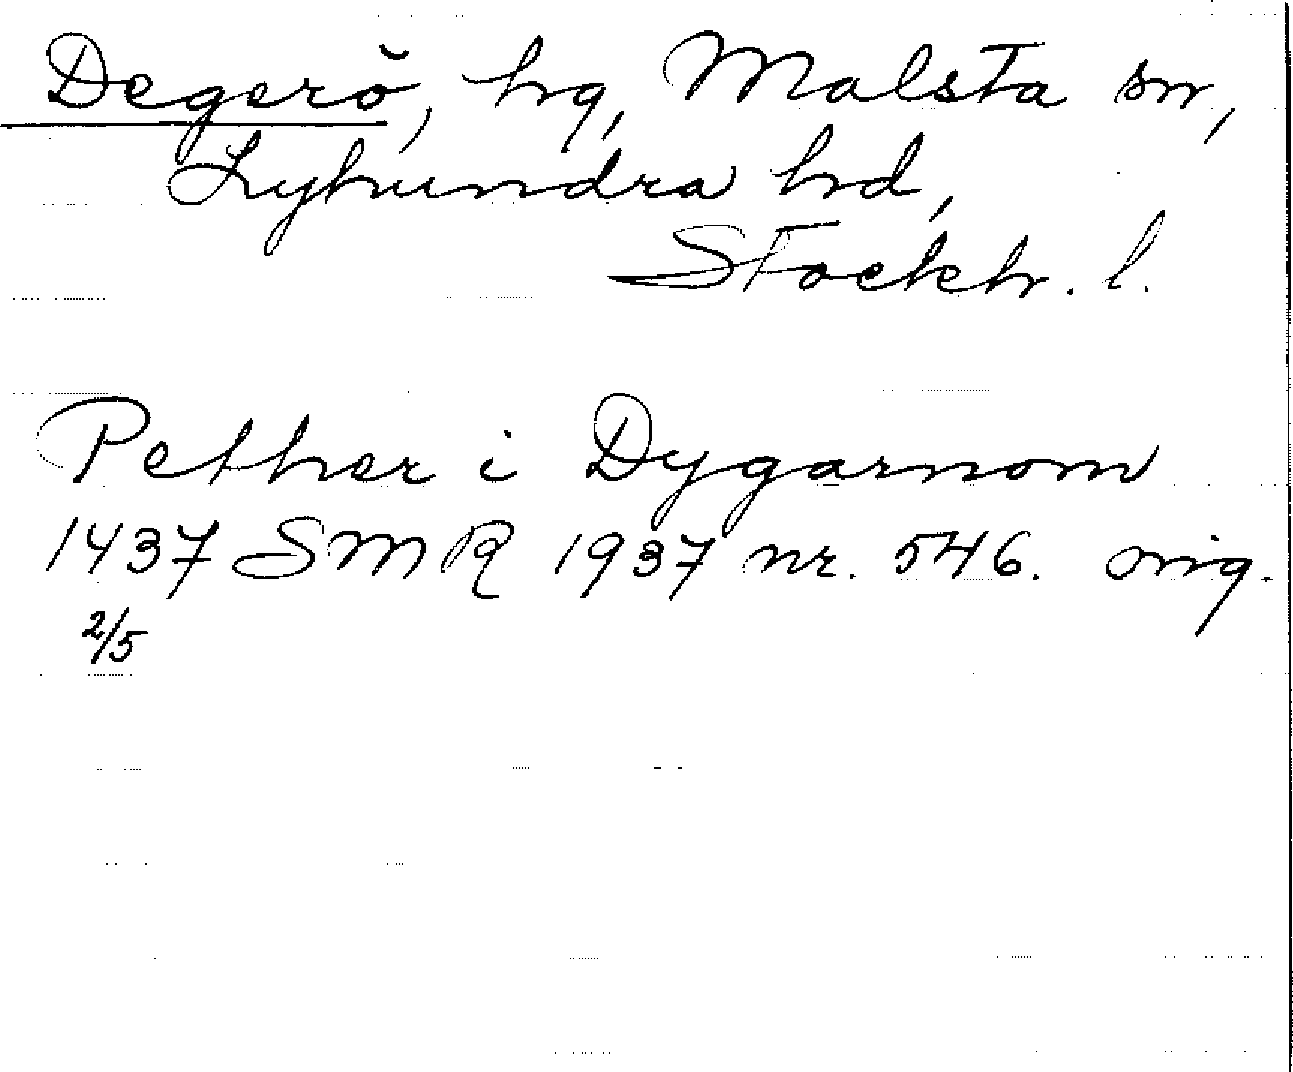 Degerö, hg, Malsta sn,
Lyhundra hd,
Stockh. l.
Pethar i Dygarnom
1437 SMR 1937 nr. 546. orig.
2/5